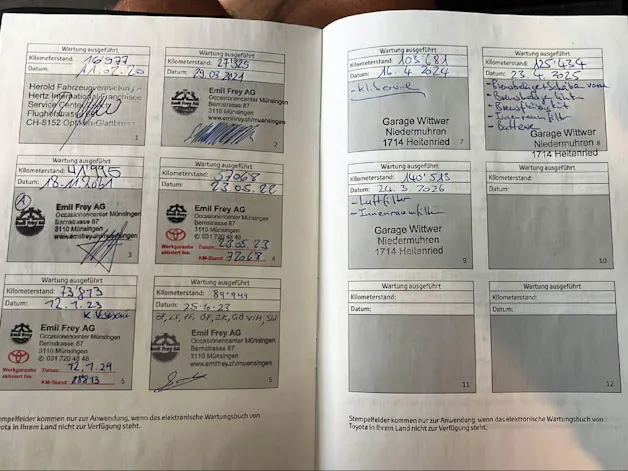 Wartung ausgeführt
Kilometerstand: 16'977
Datum: 11.02.20
Herold Fahrzeugvermietung
Hertz International Franchisee
Service Center
Flughofstrasse
CH-8152 Opfikon-Glattbrugg
1
Wartung ausgeführt
Kilometerstand: 27'925
Datum: 29.03.2021
Emil Frey AG
Occasionencenter Münsingen
Bernstrasse 67
3110 Münsingen
www.emilfrey.ch/muensingen
2
Wartung ausgeführt
Kilometerstand: 41'995
Datum: 18.11.2021
Emil Frey AG
Occasionencenter Münsingen
Bernstrasse 67
3110 Münsingen
www.emilfrey.ch/muensingen
3
Wartung ausgeführt
Kilometerstand: 57068
Datum: 23.05.22
Emil Frey AG
Occasionencenter Münsingen
Bernstrasse 67
3110 Münsingen
031 720 48 48
Werkgarantie aktiviert bis:
Datum: 23.05.23
KM-Stand: 72068
4
Wartung ausgeführt
Kilometerstand: 73813
Datum: 12.1.23
Emil Frey AG
Occasionencenter Münsingen
Bernstrasse 67
3110 Münsingen
031 720 48 48
Werkgarantie aktiviert bis:
Datum: 12.1.24
KM-Stand: 88813
5
Wartung ausgeführt
Kilometerstand: 89'949
Datum: 25.10.23
Emil Frey AG
Occasionencenter Münsingen
Bernstrasse 67
3110 Münsingen
www.emilfrey.ch/muensingen
Stempelfelder kommen nur zur Anwendung, wenn das elektronische Wartungsbuch von
Toyota in Ihrem Land nicht zur Verfügung steht.
Wartung ausgeführt
Kilometerstand: 103'681
Datum: 16.4.2024
- kl. Service
Garage Wittwer
Niedermuhren
1714 Heitenried
7
Wartung ausgeführt
Kilometerstand: 125'434
Datum: 23.4.2025
- Bremsbeläge + Scheiben vorne
- Bremsflüssigkeit
- Innenraumfilter
- Batterie
Garage Wittwer
Niedermuhren
1714 Heitenried
8
Wartung ausgeführt
Kilometerstand: 140'513
Datum: 24.3.2026
- Luftfilter
- Innenraumfilter
Garage Wittwer
Niedermuhren
1714 Heitenried
9
Wartung ausgeführt
Kilometerstand:
Datum:
10
Wartung ausgeführt
Kilometerstand:
Datum:
11
Wartung ausgeführt
Kilometerstand:
Datum:
12
Stempelfelder kommen nur zur Anwendung, wenn das elektronische Wartungsbuch von
Toyota in Ihrem Land nicht zur Verfügung steht.